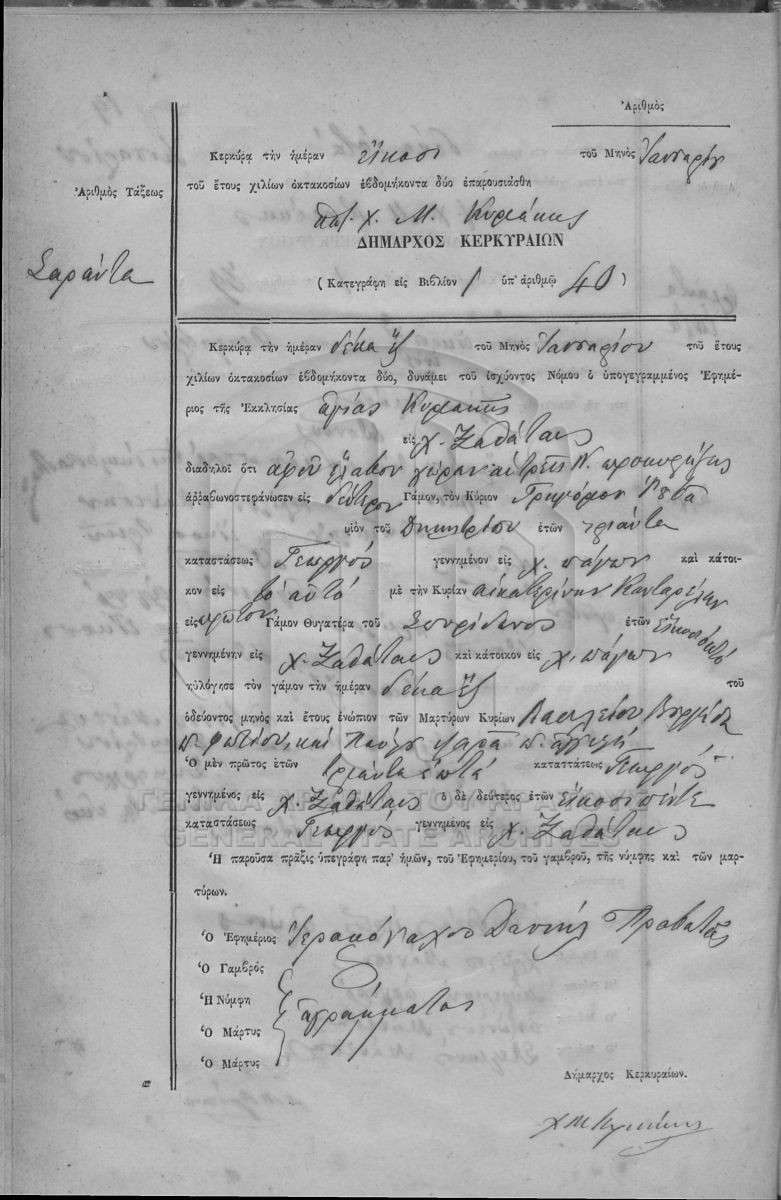 Ἀριθμὸς
Κερκύρα τὴν ἡμέραν εἴκοσι τοῦ Μηνὸς Ἰανουαρίου
τοῦ ἔτους χιλίων ὀκτακοσίων ἑβδομήκοντα δύο ἐπαρουσιάσθη
Ἀριθμὸς Τάξεως
Χ. Μ. Κυριάκης
ΔΗΜΑΡΧΟΣ ΚΕΡΚΥΡΑΙΩΝ
Σαράντα
(Κατεγράφη εἰς Βιβλίον 1 ὑπ' ἀριθμῷ 40)
Κερκύρα τὴν ἡμέραν δέκα ἕξ τοῦ Μηνὸς Ἰανουαρίου τοῦ ἔτους
χιλίων ὀκτακοσίων ἑβδομήκοντα δύο, δυνάμει τοῦ ἰσχύοντος Νόμου ὁ ὑπογεγραμμένος Ἐφημέ-
ριος τῆς Ἐκκλησίας ἁγίας Κυριακῆς
εἰς χ. Ξαθάταις
διαδηλοῖ ὅτι ἀφοῦ ἔλαβον χώραν αἱ τρεῖς Ν. προκηρύξεις
ἀῤῥαβωνοστεφάνωσεν εἰς δεύτερον Γάμον, τὸν Κύριον Γρηγόριον
υἱὸν τοῦ Δημητρίου ἐτῶν τριάντα
καταστάσεως Γεωργός γεννημένον εἰς χ. πάγων καὶ κάτοι-
κον εἰς τὸ αὐτό μὲ τὴν Κυρίαν αἰκατερίναν Κονταρίναν
εἰς πρῶτον Γάμον Θυγατέρα τοῦ Σπυρίδωνος ἐτῶν εἰκοσιοκτό
γεννημένην εἰς χ. Ξαθάταις καὶ κάτοικον εἰς χ. πάγων
ηὐλόγησε τὸν γάμον τὴν ἡμέραν δέκα ἕξ τοῦ
ὁδεύοντος μηνὸς καὶ ἔτους ἐνώπιον τῶν Μαρτύρων Κυρίων Βασιλείου
π. φωτίου, καὶ Παύλου π.
Ὁ μὲν πρῶτος ἐτῶν τριάντα ἑπτά καταστάσεως Γεωργός
γεννημένος εἰς χ. Ξαθάταις ὁ δὲ δεύτερος ἐτῶν εἰκοσιπέντε
ΓΕΝΙΚΑ ΑΡΧΕΙΑ ΤΟΥ ΚΡΑΤΟΥΣ
καταστάσεως Γεωργός γεννημένος εἰς χ. Ξαθάταις
GENERAL STATE ARCHIVES
Ἡ παροῦσα πρᾶξις ὑπεγράφη παρ' ἡμῶν, τοῦ Ἐφημερίου, τοῦ γαμβροῦ, τῆς νύμφης καὶ τῶν μαρ-
τύρων.
Ὁ Ἐφημέριος Ἱερομόναχος Δανιήλ Προβατᾶς
Ὁ Γαμβρός
Ἡ Νύμφη
ἀγράμματοι
Ὁ Μάρτυς
Ὁ Μάρτυς
Δήμαρχος Κερκυραίων.
Χ Μ Κυριάκης